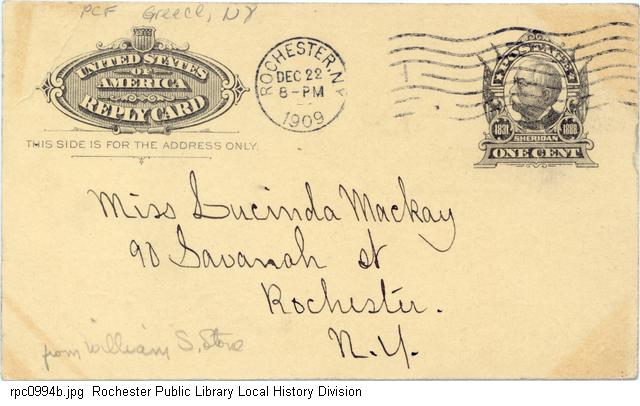 PCF Greece, NY
UNITED STATES
OF
AMERICA
REPLY CARD
THIS SIDE IS FOR THE ADDRESS ONLY.
ROCHESTER, N.Y.
DEC 22
8-PM
1909
POSTAGE
1831 1888
SHERIDAN
ONE CENT
Miss Lucinda Mackay
90 Savanah st
Rochester.
N.Y.
from William S, Stone
rpc0994b.jpg Rochester Public Library Local History Division